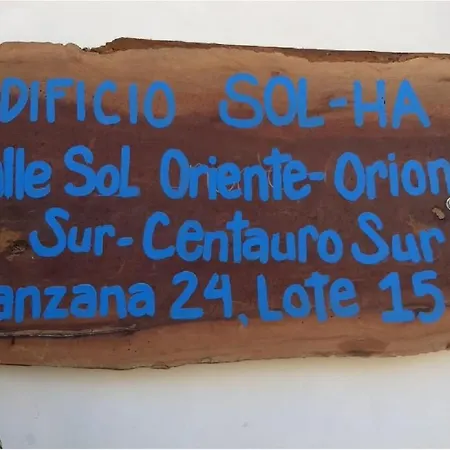 DIFICIO SOL-HA
alle Sol Oriente-Orion
Sur-Centauro Sur
anzana 24, Lote 15